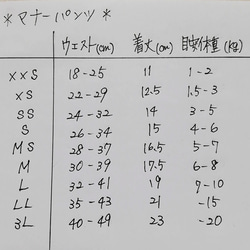 *マナーパンツ*
ウエスト(cm) 着丈(cm) 目安体重(kg)
XXS 18-25 11 1-2
XS 22-29 12.5 1.5-3
SS 24-32 14 3-5
S 26-34 15 4-6
MS 28-37 16.5 5-7
M 30-39 17.5 6-8
L 32-41 19 7-10
LL 35-43 21 -15
3L 40-49 23 -20